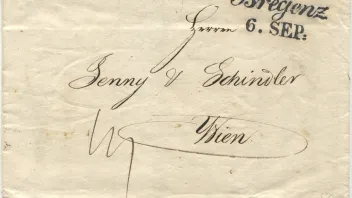 Bregenz
6. SEP:
Herren
Jenny & Schindler
Wien